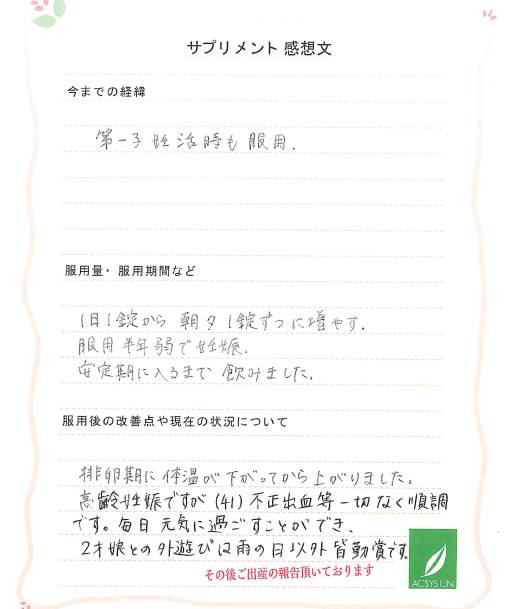 サプリメント 感想文
今までの経緯
第一子 妊活時も服用.
服用量・服用期間など
1日1錠から 朝夕1錠ずつに増やす.
服用半年弱で妊娠.
安定期に入るまで 飲みました。
服用後の改善点や現在の状況について
排卵期に 体温が下がってから上がりました。
高齢妊娠ですが (41) 不正出血等一切なく順調
です。毎日 元気に過ごすことができ、
2才娘との外遊びは雨の日以外 皆勤賞です。
その後ご出産の報告頂いております
ACSYSUN